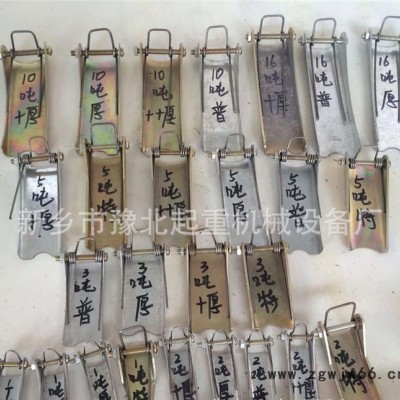 10吨厚
10吨厚
10吨++厚
10吨普
16吨+厚
16吨普
16吨厚
5吨厚
5吨特
5吨+厚
5吨厚
5吨普
5吨特
新乡市豫北起重机械设备厂
3吨普
3吨厚
3吨+厚
3吨特
1吨
1吨特
2吨
2吨
2吨
2吨特
www.zgwj66.com